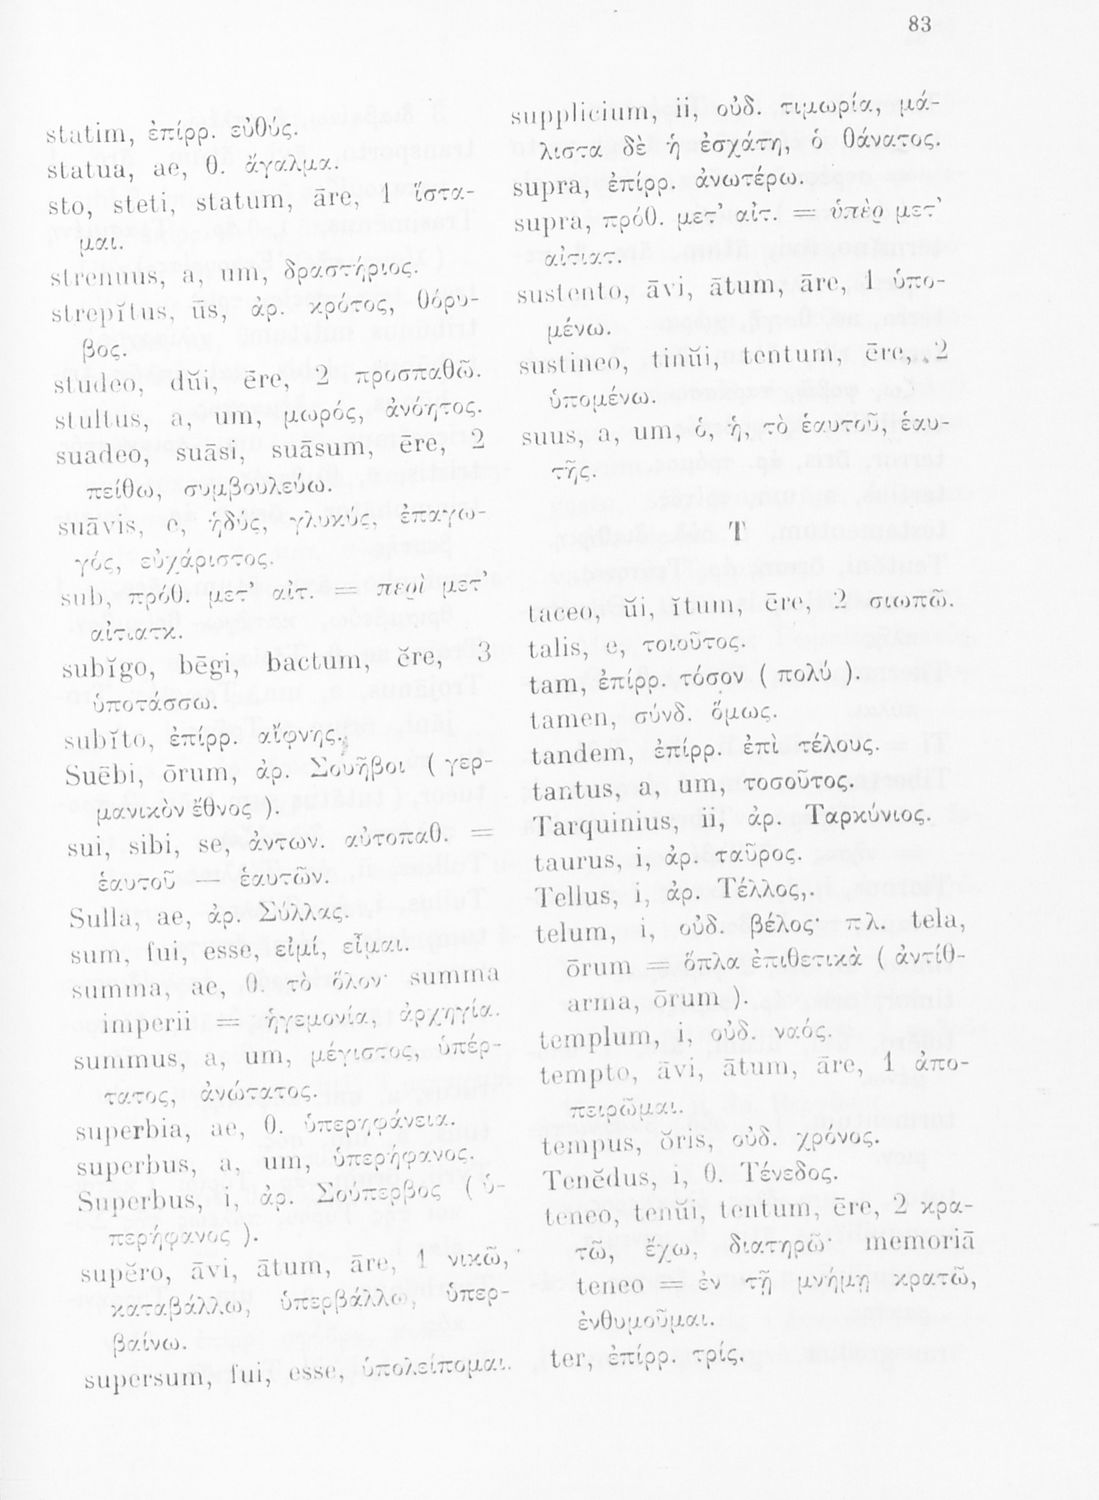 83
statim, ἐπίρρ. εὐθύς.
statua, ae, θ. ἄγαλμα.
sto, steti, statum, āre, 1 ἵστα-
μαι.
strenuus, a, um, δραστήριος.
strepĭtus, ūs, ἀρ. κρότος, θόρυ-
βος.
studeo, dŭi, ēre, 2 προσπαθῶ.
stultus, a, um, μωρός, ἀνόητος.
suadeo, suāsi, suāsum, ēre, 2
πείθω, συμβουλεύω.
suāvis, e, ἡδύς, γλυκύς, ἐπαγω-
γός, εὐχάριστος.
sub, πρόθ. μετ' αἰτ. = περὶ μετ'
αἰτιατκ.
subĭgo, bēgi, bactum, ĕre, 3
ὑποτάσσω.
subĭto, ἐπίρρ. αἴφνης.
Suēbi, ōrum, ἀρ. Σουῆβοι ( γερ-
μανικὸν ἔθνος ).
sui, sibi, se, ἀντων. αὐτοπαθ. =
ἑαυτοῦ — ἑαυτῶν.
Sulla, ae, ἀρ. Σύλλας.
sum, fui, esse, εἰμί, εἶμαι.
summa, ae, θ. τὸ ὅλον· summa
imperii = ἡγεμονία, ἀρχηγία.
summus, a, um, μέγιστος, ὑπέρ-
τατος, ἀνώτατος.
superbia, ae, θ. ὑπερηφάνεια.
superbus, a, um, ὑπερήφανος.
Superbus, i, ἀρ. Σούπερβος ( ὑ-
περήφανος ).
supĕro, āvi, ātum, āre, 1 νικῶ,
καταβάλλω, ὑπερβάλλω, ὑπερ-
βαίνω.
supersum, fui, esse, ὑπολείπομαι.
supplicium, ii, οὐδ. τιμωρία, μά-
λιστα δὲ ἡ ἐσχάτη, ὁ θάνατος.
supra, ἐπίρρ. ἀνωτέρω.
supra, πρόθ. μετ' αἰτ. = ὑπὲρ μετ'
αἰτιατ.
sustento, āvi, ātum, āre, 1 ὑπο-
μένω.
sustineo, tinŭi, tentum, ēre, 2
ὑπομένω.
suus, a, um, ὁ, ἡ, τὸ ἑαυτοῦ, ἑαυ-
τῆς.
T
taceo, ŭi, ĭtum, ēre, 2 σιωπῶ.
talis, e, τοιοῦτος.
tam, ἐπίρρ. τόσον ( πολύ ).
tamen, σύνδ. ὅμως.
tandem, ἐπίρρ. ἐπὶ τέλους.
tantus, a, um, τοσοῦτος.
Tarquinius, ii, ἀρ. Ταρκύνιος.
taurus, i, ἀρ. ταῦρος.
Tellus, i, ἀρ. Τέλλος,.
telum, i, οὐδ. βέλος· πλ. tela,
ōrum = ὅπλα ἐπιθετικὰ ( ἀντίθ-
arma, ōrum ).
templum, i, οὐδ. ναός.
tempto, āvi, ātum, āre, 1 ἀπο-
πειρῶμαι.
tempus, ŏris, οὐδ. χρόνος.
Tenĕdus, i, θ. Τένεδος.
teneo, tenŭi, tentum, ēre, 2 κρα-
τῶ, ἔχω, διατηρῶ· memoriā
teneo = ἐν τῇ μνήμῃ κρατῶ,
ἐνθυμοῦμαι.
ter, ἐπίρρ. τρίς.